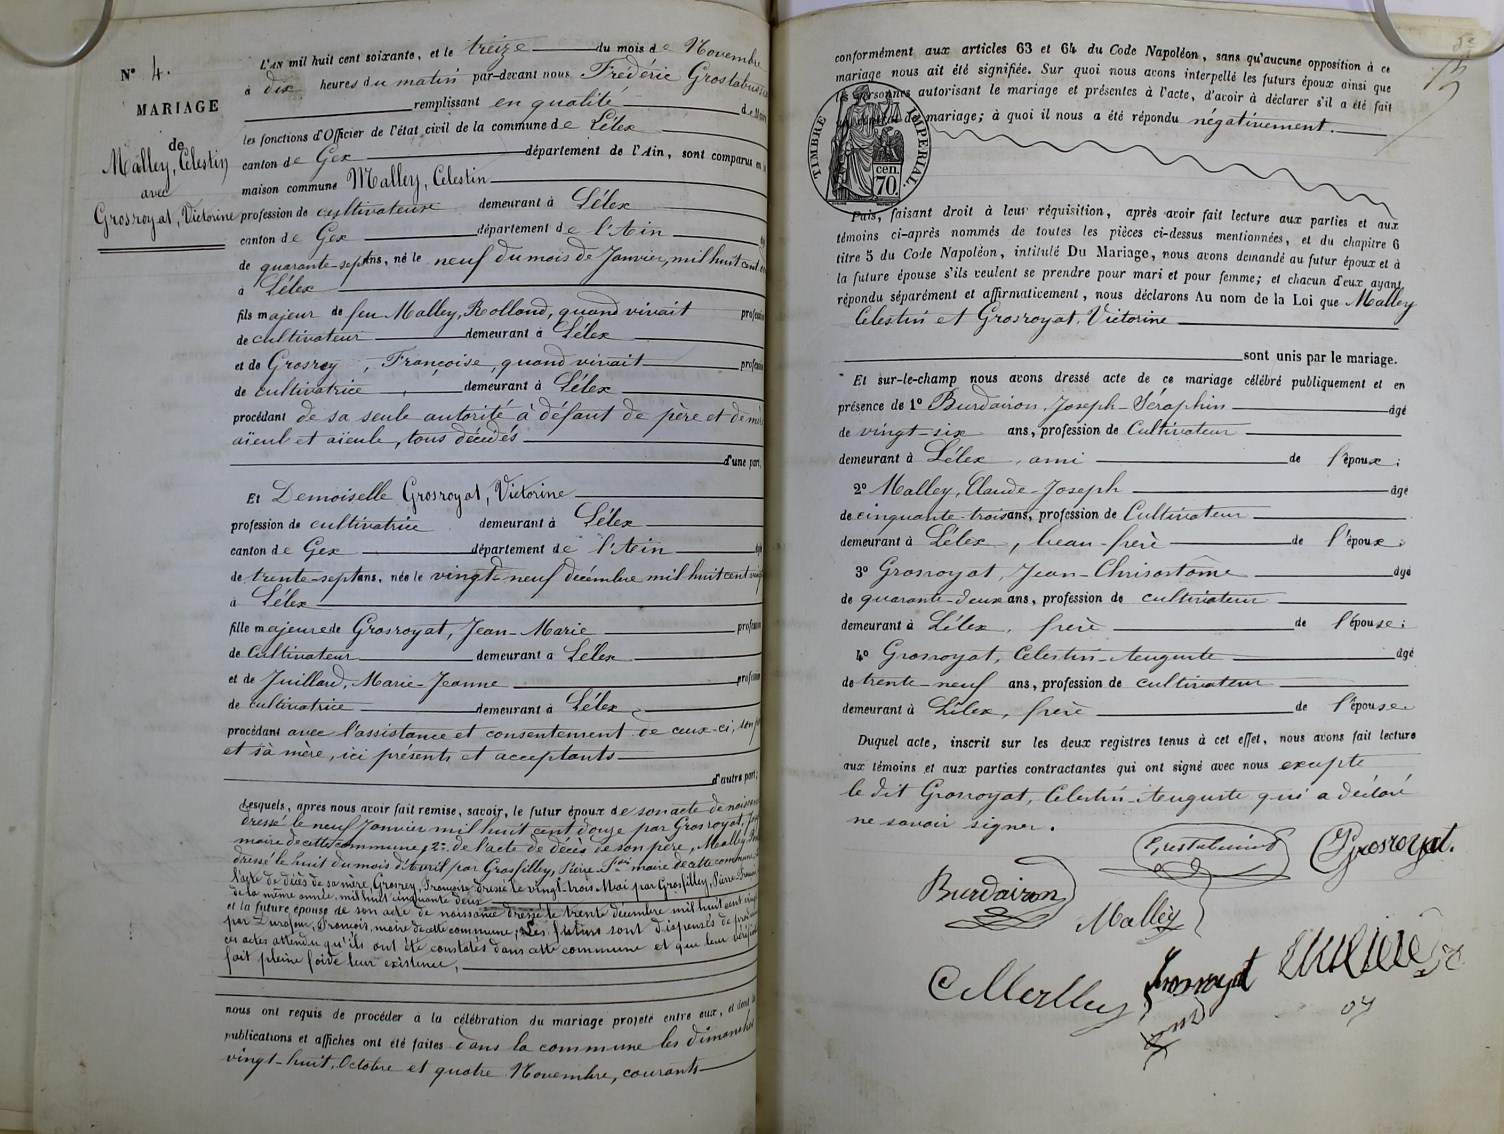 N° 4.
MARIAGE
de
Malley, Celestin
avec
Grosroyat, Victorine
L'AN mil huit cent soixante, et le treize du mois de Novembre
à dix heures du matin par-devant nous Frédéric
remplissant en qualité de
les fonctions d'Officier de l'état civil de la commune de Lélex
canton de Gex département de l'Ain, sont comparus en
maison commune Malley, Celestin
profession de cultivateur demeurant à Lélex
canton de Gex département de l'Ain
de quarante-sept ans, né le neuf du mois de Janvier, mil huit cent
à Lélex
fils majeur de feu Malley, Rolland, quand vivait profession
de cultivateur demeurant à Lélex
et de Grosrey, Françoise, quand vivait profession
de cultivatrice, demeurant à Lélex
procédant de sa seule autorité à défaut de père et de mère
aïeul et aïeule, tous décédés
d'une part,
Et Demoiselle Grosroyat, Victorine
profession de cultivatrice demeurant à Lélex
canton de Gex département de l'Ain
de trente-sept ans, née le vingt-neuf décembre mil huit cent
à Lélex
fille majeure de Grosroyat, Jean-Marie profession
de Cultivateur demeurant à Lélex
et de Juilland, Marie-Jeanne profession
de cultivatrice demeurant à Lélex
procédant avec l'assistance et consentement de ceux-ci, son
et sa mère, ici présents et acceptants
d'autre part;
Lesquels, après nous avoir fait remise, savoir, le futur époux de son acte de naissance
dressé le neuf Janvier mil huit cent douze par Grosroyat,
maire de cette commune, 2° de l'acte de décès de son père, Malley
dressé le huit du mois d'Avril par Grosfilley, Pierre maire de cette commune
l'acte de décès de sa mère, Grosrey, Françoise dressé le vingt-trois Mai par Grosfilley, Pierre
de la même année, mil huit cinquante deux
et la future épouse de son acte de naissance dressé le trente décembre mil huit cent
par François, maire de cette commune; Les futurs sont dispensés de
ces actes attendu qu'ils ont été constatés dans cette commune et que leur
fait pleine foi de leur existence,
nous ont requis de procéder à la célébration du mariage projeté entre eux, et dont
publications et affiches ont été faites dans la commune les dimanches
vingt-huit, Octobre et quatre Novembre, courants
conformément aux articles 63 et 64 du Code Napoléon, sans qu'aucune opposition à ce
mariage nous ait été signifiée. Sur quoi nous avons interpellé les futurs époux ainsi que
les personnes autorisant le mariage et présentes à l'acte, d'avoir à déclarer s'il a été fait
de mariage; à quoi il nous a été répondu négativement.
TIMBRE IMPÉRIAL.
cen.
70.
Puis, faisant droit à leur réquisition, après avoir fait lecture aux parties et aux
témoins ci-après nommés de toutes les pièces ci-dessus mentionnées, et du chapitre 6
titre 5 du Code Napoléon, intitulé Du Mariage, nous avons demandé au futur époux et à
la future épouse s'ils veulent se prendre pour mari et pour femme; et chacun d'eux ayant
répondu séparément et affirmativement, nous déclarons Au nom de la Loi que Malley
Celestin et Grosroyat, Victorine
sont unis par le mariage.
Et sur-le-champ nous avons dressé acte de ce mariage célébré publiquement et en
présence de 1° Burdairon, Joseph-Séraphin âgé
de vingt-six ans, profession de Cultivateur
demeurant à Lélex, ami de l'époux;
2° Malley, Claude-Joseph âgé
de cinquante-trois ans, profession de Cultivateur
demeurant à Lélex, beau-frère de l'époux;
3° Grosroyat, Jean-Chrisostôme âgé
de quarante-deux ans, profession de cultivateur
demeurant à Lélex, frère de l'épouse;
4° Grosroyat, Celestin-Auguste âgé
de trente-neuf ans, profession de cultivateur
demeurant à Lélex, frère de l'épouse.
Duquel acte, inscrit sur les deux registres tenus à cet effet, nous avons fait lecture
aux témoins et aux parties contractantes qui ont signé avec nous excepté
le dit Grosroyat, Celestin-Auguste qui a déclaré
ne savoir signer.
Grosroyat.
Burdairon
Malley
C Malley
Grosroyat